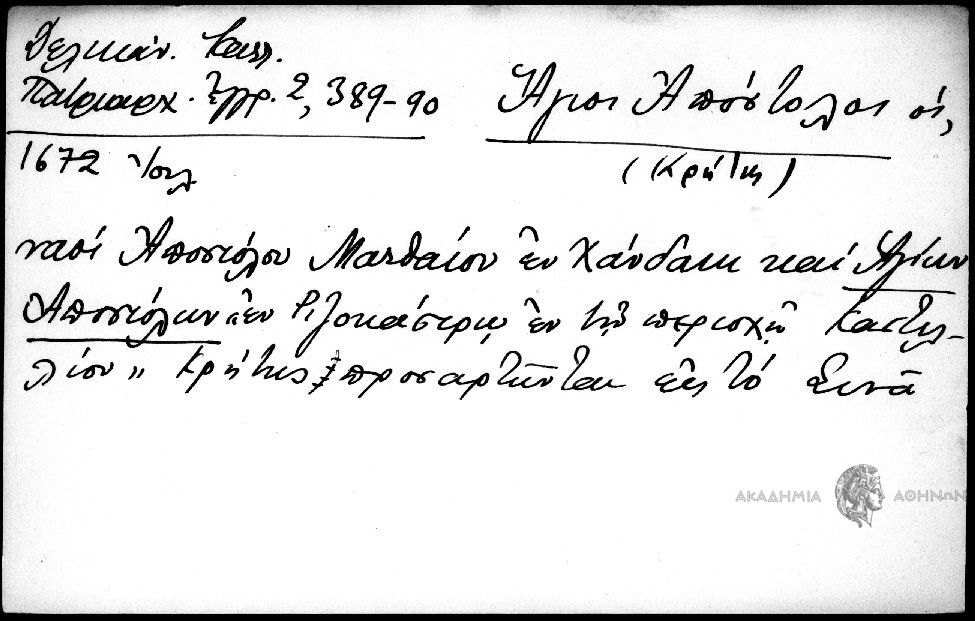 Δελικάν. Καλλ.
Πατριαρχ. Ἔγγρ. 2, 389-90
Ἅγιοι Ἀπόστολοι οἱ,
1672 Ἰουλ
(Κρήτης)
ναοί Ἀποστόλου Ματθαίου ἐν Χάνδακι καί Ἁγίων
Ἀποστόλων „ἐν Ριζοκάστρῳ ἐν τῇ περιοχῇ Καστελ-
λίου" Κρήτης προσαρτῶνται εἰς τό Σινᾶ
ΑΚΑΔΗΜΙΑ ΑΘΗΝΩΝ